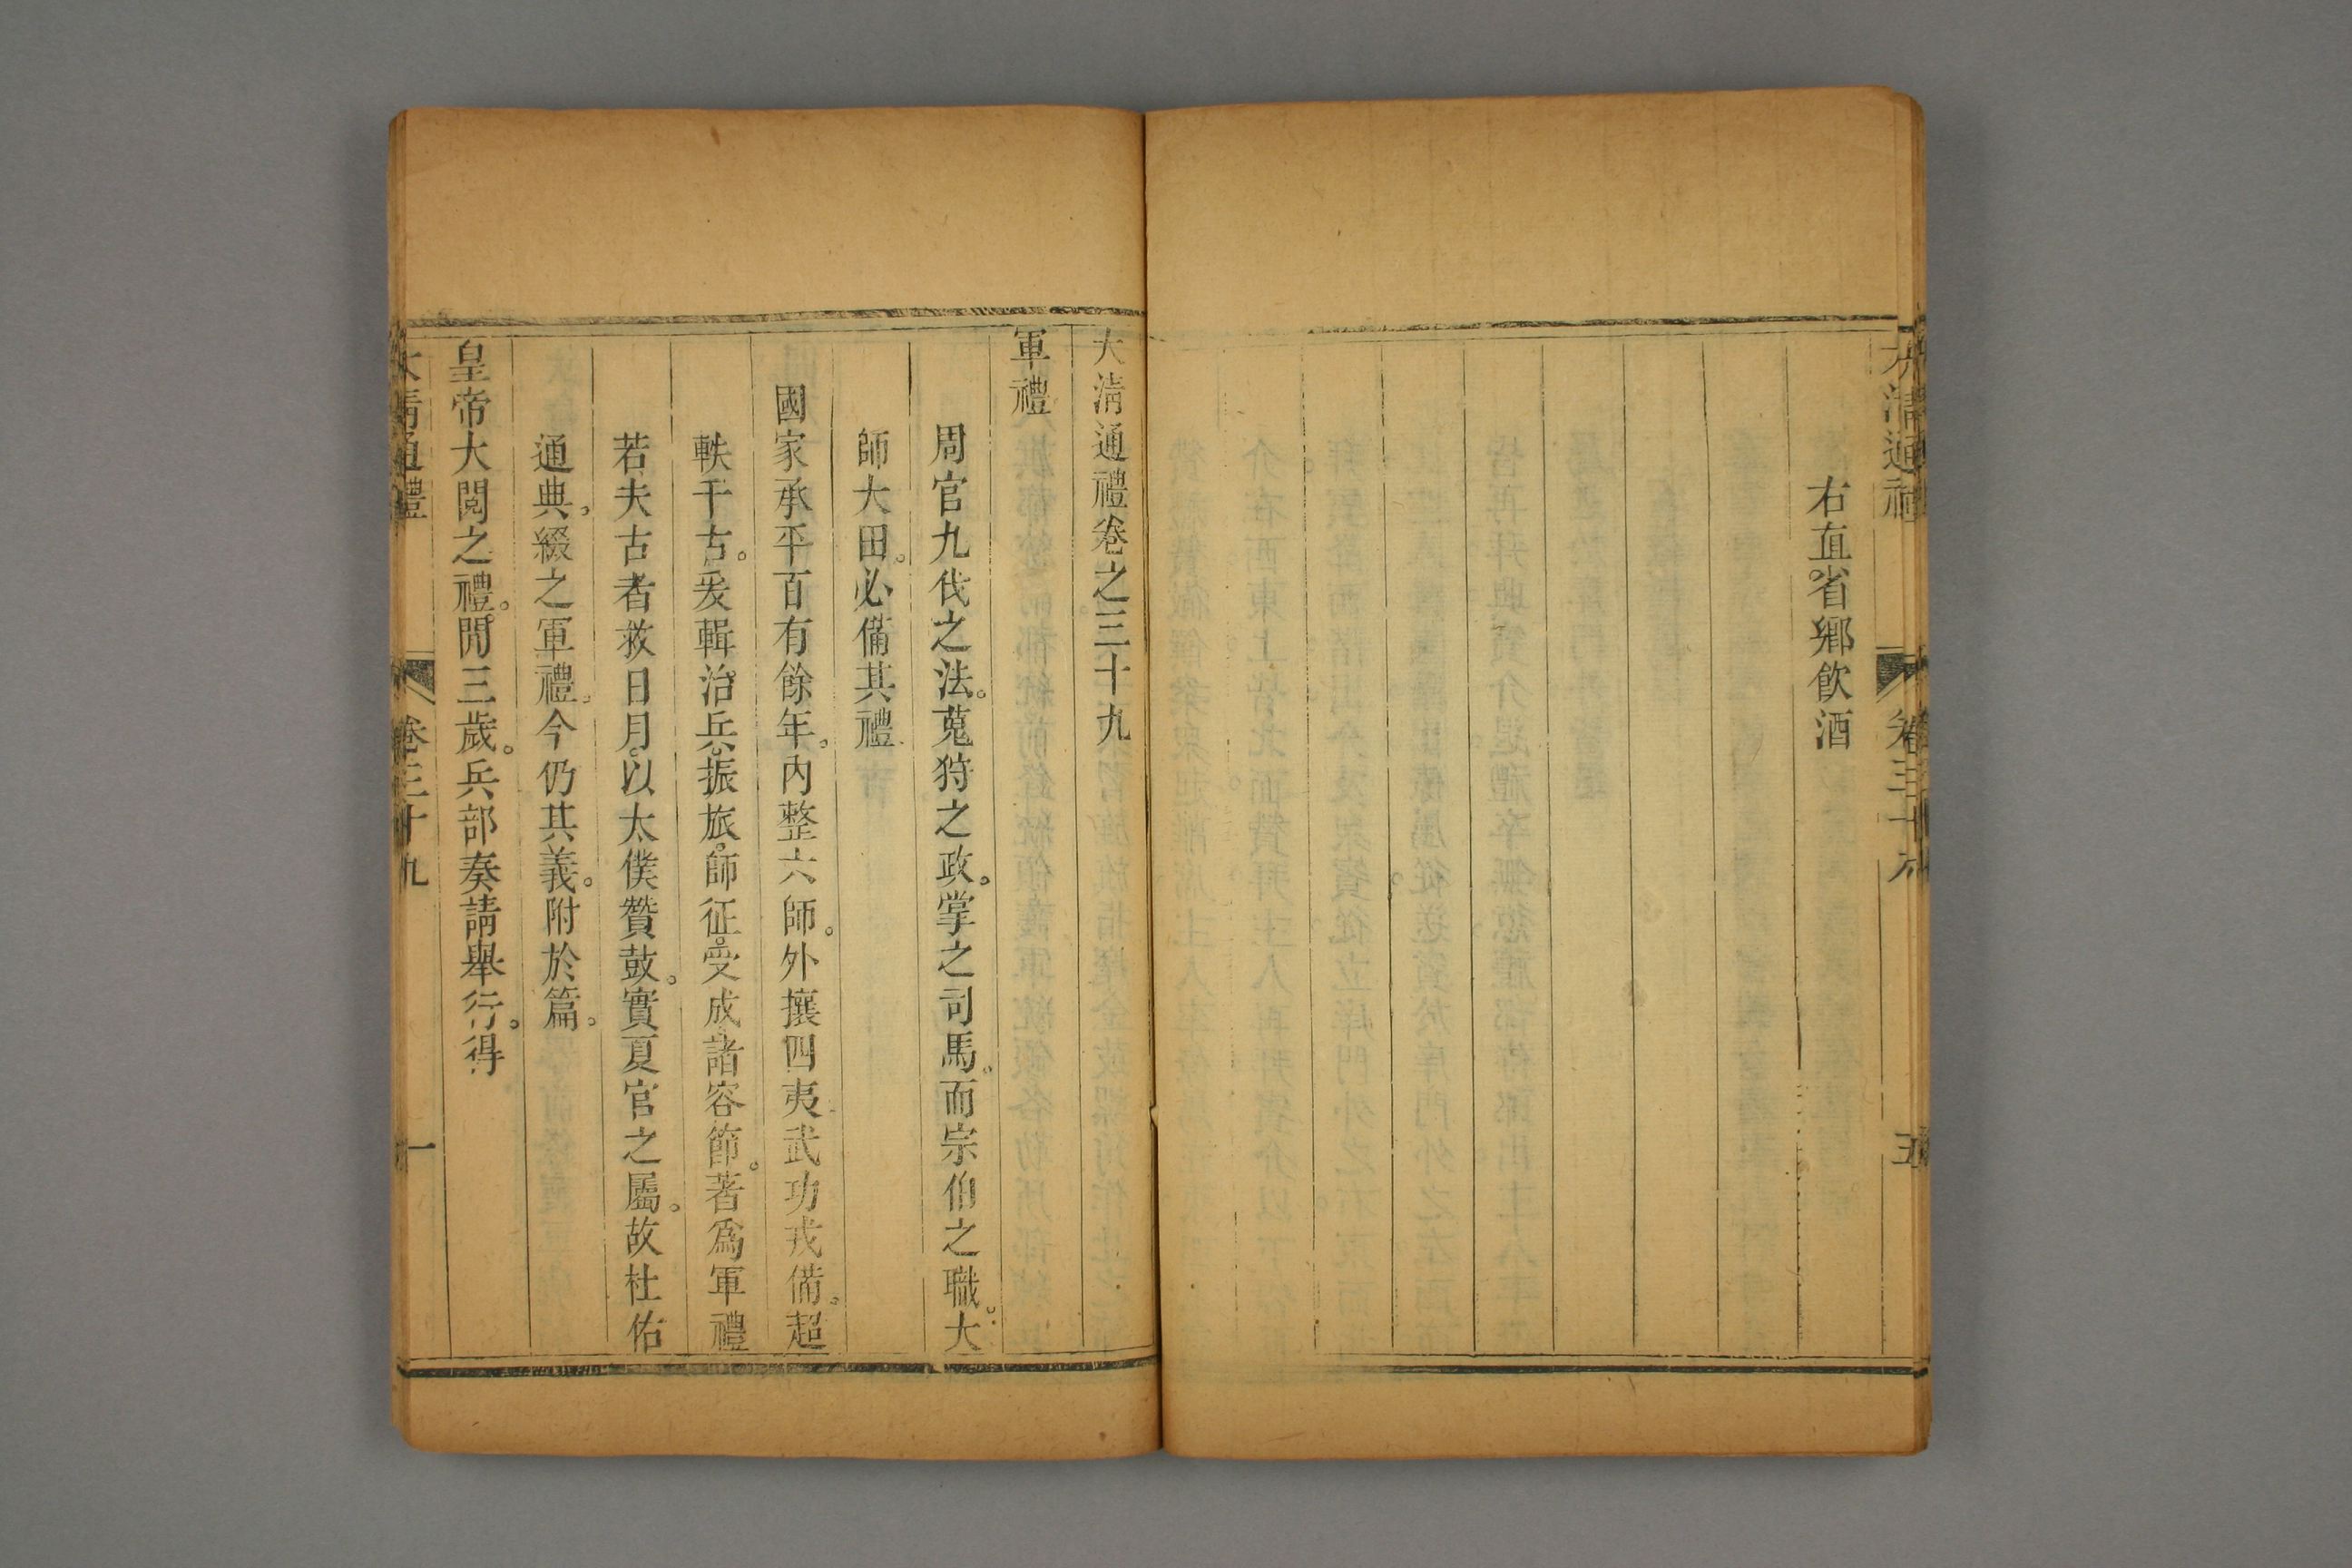 右直省鄉飲酒
五
大清通禮卷之三十九
軍禮
周官九伐之法。蒐狩之政。掌之司馬。而宗伯之職。大
師大田。必備其禮
國家承平百有餘年。內整六師。外攘四夷。武功戎備。超
軼千古。爰輯治兵。振旅。師征。受成。諸容節。著爲軍禮
若夫古者救日月。以太僕贊鼓。實夏官之屬。故杜佑
通典。綴之軍禮。今仍其義。附於篇。
皇帝大閱之禮。間三歲。兵部奏請舉行。得
大清通禮
卷三十九
一